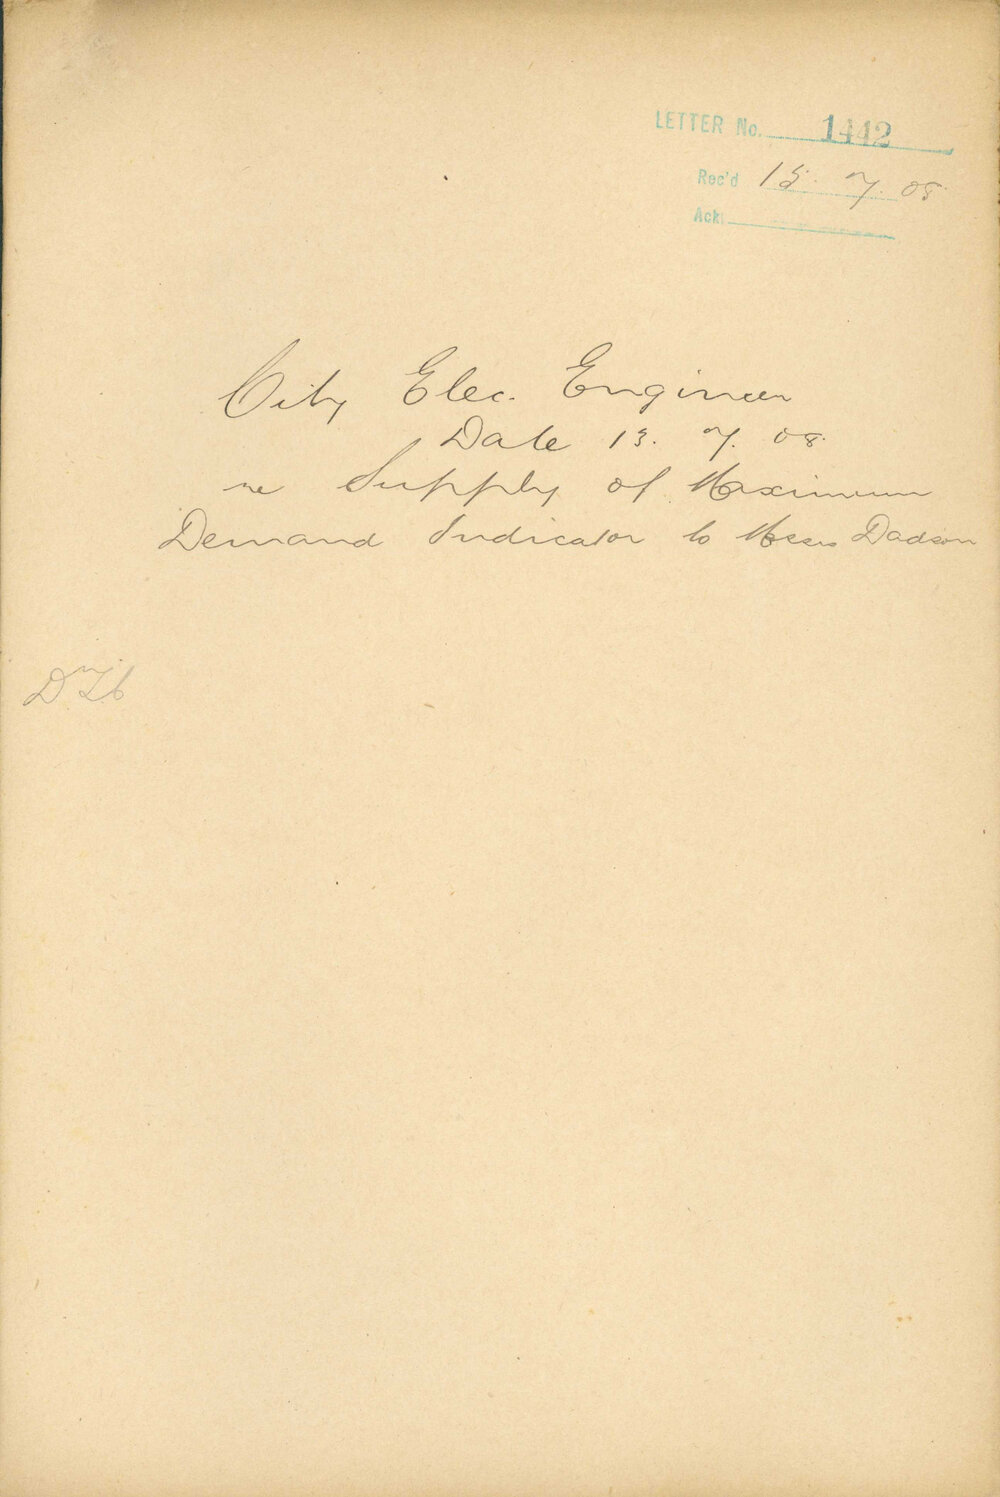 LETTER No. 1442
Rec'd 15. 7. 08
Ack.
City Elec. Engineer
Date 13. 7. 08.
re Supply of Maximum
Demand Indicator to Messrs Dadson